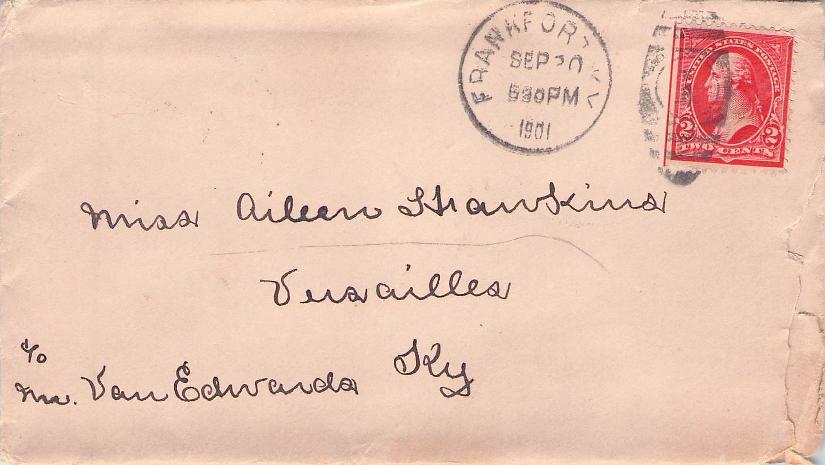 FRANKFORT KY.
SEP 30
530PM
1901
UNITED STATES POSTAGE
2 2
TWO CENTS
Miss Aileen Hawkins
Versailles
Ky
c/o
Mr. Van Edwards